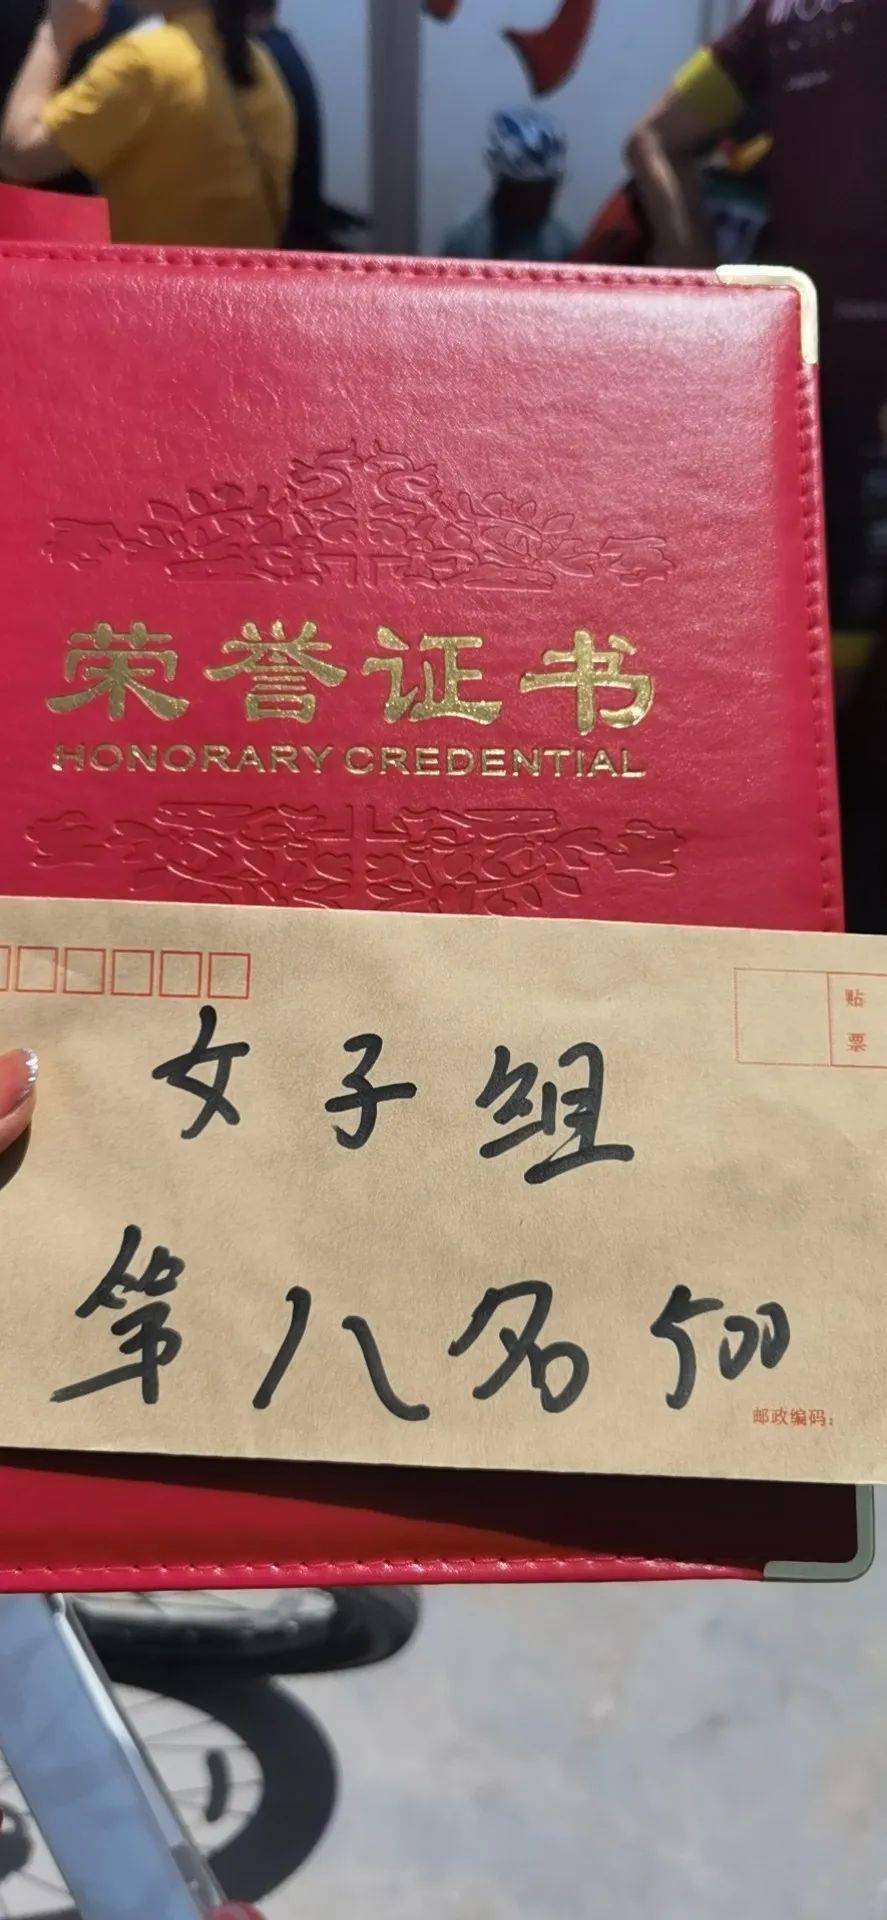 荣誉证书
HONORARY CREDENTIAL
贴
票
女子组
第八名 500
邮政编码: